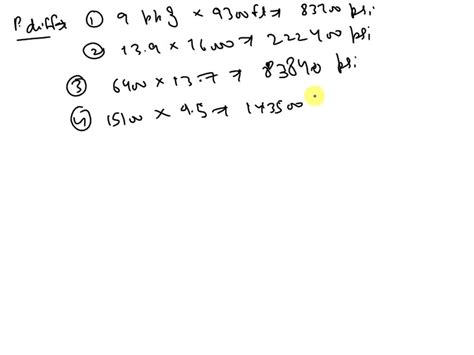 P. diff ① 9 ppg × 9300 ft → 83700 psi
② 13.9 × 16000 → 222400 psi
③ 6400 × 13.7 → 83840 psi
④ 15100 × 9.5 → 143500